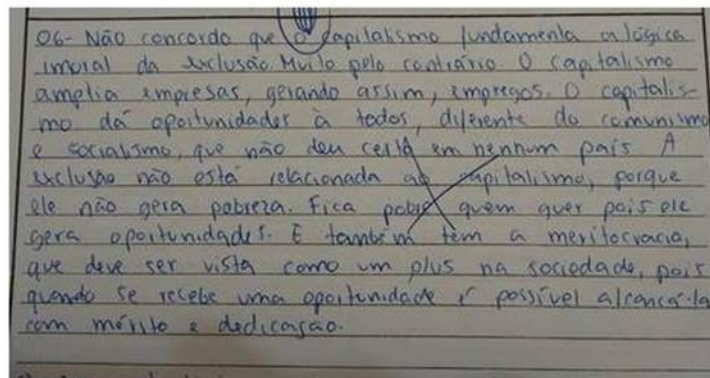 06- Não concordo que o capitalismo fundamenta a lógica
imoral da exclusão Muito pelo contrário. O capitalismo
amplia empresas, gerando assim, empregos. O capitalis-
mo dá oportunidades à todos, diferente do comunismo
e socialismo, que não deu certo em nenhum país A
exclusão não está relacionada ao capitalismo, porque
ele não gera pobreza. Fica pobre quem quer pois ele
gera oportunidades. E também têm a meritocracia,
que deve ser vista como um plus na sociedade, pois
quando se recebe uma oportunidade é possível alcançá-la
com mérito e dedicação.